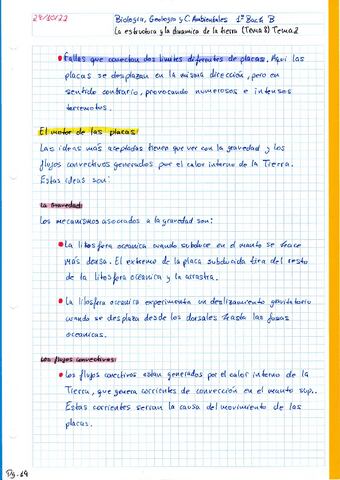 24/10/22
Biología, Geología y C. Ambientales 1º Bach B
La estructura y la dinámica de la tierra (Tema 8) Tema 2
• Fallas que conectan dos límites diferentes de placas. Aquí las
placas se desplazan en la misma dirección, pero en
sentido contrario, provocando numerosos e intensos
terremotos.
El motor de las placas
Las ideas más aceptadas tienen que ver con la gravedad y los
flujos convectivos generados por el calor interno de la Tierra.
Estas ideas son:
La Gravedad:
Los mecanismos asociados a la gravedad son:
• La litosfera oceánica cuando subduce en el manto se hace
más densa. El extremo de la placa subducida tira del resto
de la litosfera oceánica y la arrastra.
• La litosfera oceánica experimenta un deslizamiento gravitatorio
cuando se desplaza desde los dorsales hasta las fosas
oceánicas.
Los flujos convectivos:
• Los flujos convectivos están generados por el calor interno de la
Tierra, que genera corrientes de convección en el manto sup..
Estas corrientes serían la causa del movimiento de las
placas.
Pg. 69